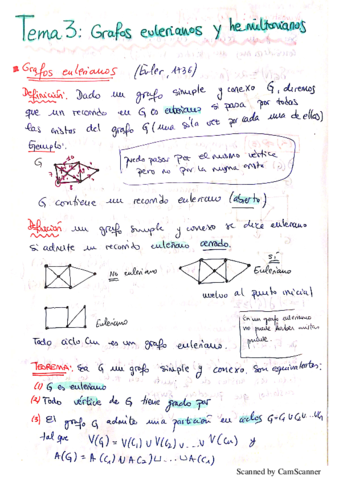 Tema 3: Grafos eulerianos y hemiltonianos
Grafos eulerianos (Euler, 1736)
Definición: Dado un grafo simple y conexo G, diremos
que un recorrido en G es euleriano si pasa por todas
las aristas del grafo G (una sola vez por cada una de ellas)
Ejemplo:
G
puedo pasar por el mismo vértice
pero no por la misma arista
G contiene un recorrido euleriano (abierto)
Definición un grafo simple y conexo se dice euleriano
si admite un recorrido euleriano cerrado.
No euleriano
sí
Euleriano
vuelvo al punto inicial
Euleriano
En un grafo euleriano
no puede haber
puente.
Todo ciclo Cn es un grafo euleriano.
TEOREMA: Sea G un grafo simple y conexo. Son equivalentes:
(1) G es euleriano
(2) Todo vértice de G tiene grado par
(3) El grafo G admite una partición en ciclos G=G1∪G2∪...∪Gn
tal que V(G) = V(C1) ∪ V(C2) ∪ ... ∪ V(Cn) y
A(G) = A(C1) ∪ A(C2) ∪ ... ∪ A(Cn)
Scanned by CamScanner